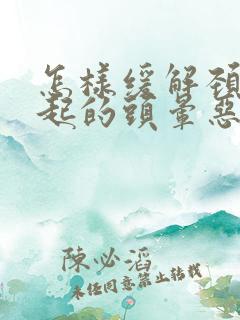 怎樣緩解頸
起的頭暈惡
陳必滔
未经同意禁止转载